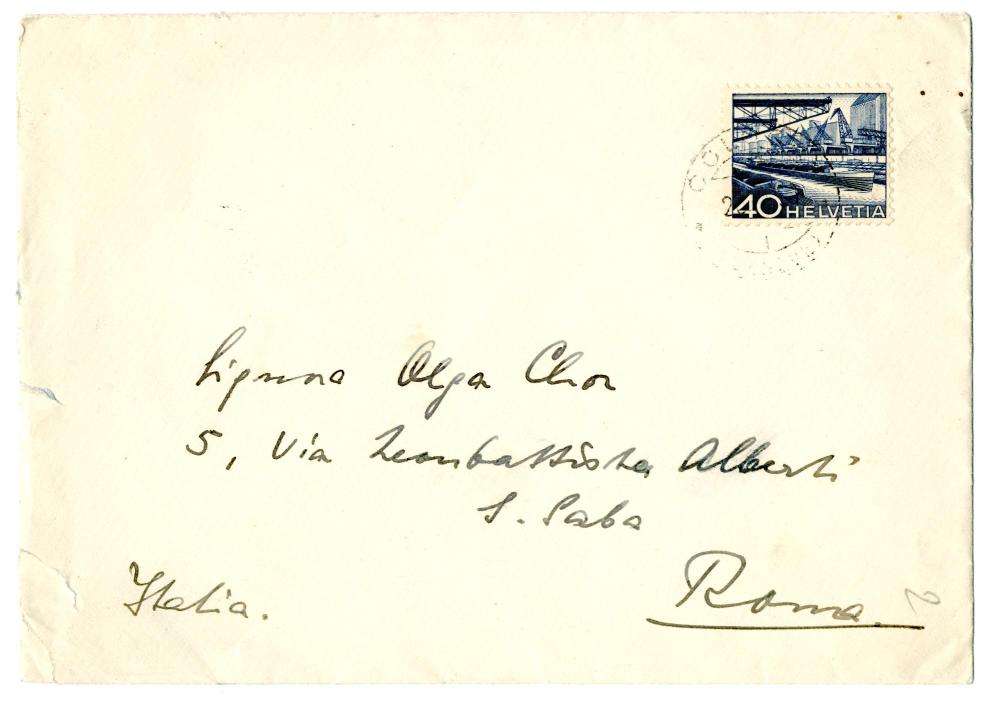 40 HELVETIA
Signora Olga Chor
5, Via Leonbattista Alberti
S. Saba
Italia.
Roma.
2